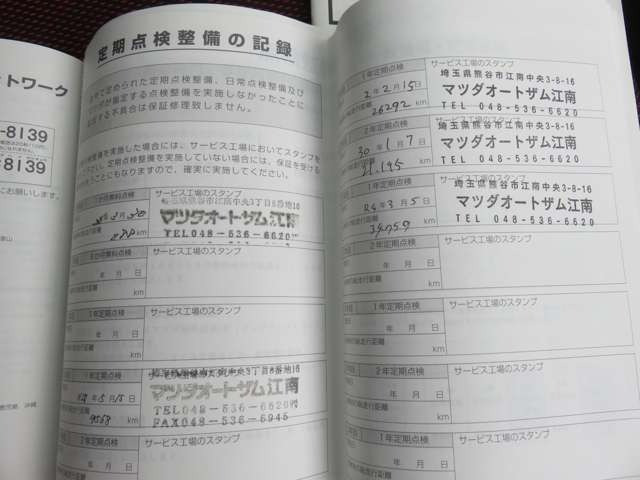 トワーク
-8139
8139
にお願いします。
定期点検整備の記録
で定められた定期点検整備、日常点検整備及び
が指定する点検整備を実施しなかったことに
する不具合は保証修理致しません。
整備を実施した場合には、サービス工場においてスタンプを
さい。定期点検整備を実施していない場合には、保証を受ける
うこともなりますので、確実に実施してください。
サービス工場のスタンプ
マツダオートザム江南
TEL048-536-6620
km
サービス工場のスタンプ
年 月 日
km
1年定期点検
サービス工場のスタンプ
年 月 日
km
2年定期点検
マツダオートザム江南
TEL048-536-6620
FAX048-536-6945
km
1年定期点検
サービス工場のスタンプ
年 月 日
km
1年定期点検
サービス工場のスタンプ
2年2月15日
埼玉県熊谷市江南中央3-8-16
マツダオートザム江南
26292 km
TEL 048-536-6620
2年定期点検
サービス工場のスタンプ
30年1月7日
埼玉県熊谷市江南中央3-8-16
マツダオートザム江南
km
TEL 048-536-6620
1年定期点検
サービス工場のスタンプ
年3月5日
埼玉県熊谷市江南中央3-8-16
マツダオートザム江南
34759 km
TEL 048-536-6620
2年定期点検
サービス工場のスタンプ
年 月 日
km
1年定期点検
サービス工場のスタンプ
年 月 日
km
2年定期点検
サービス工場のスタンプ
年 月 日
km
1年定期点検
サービス工場のスタンプ
年 月 日
km